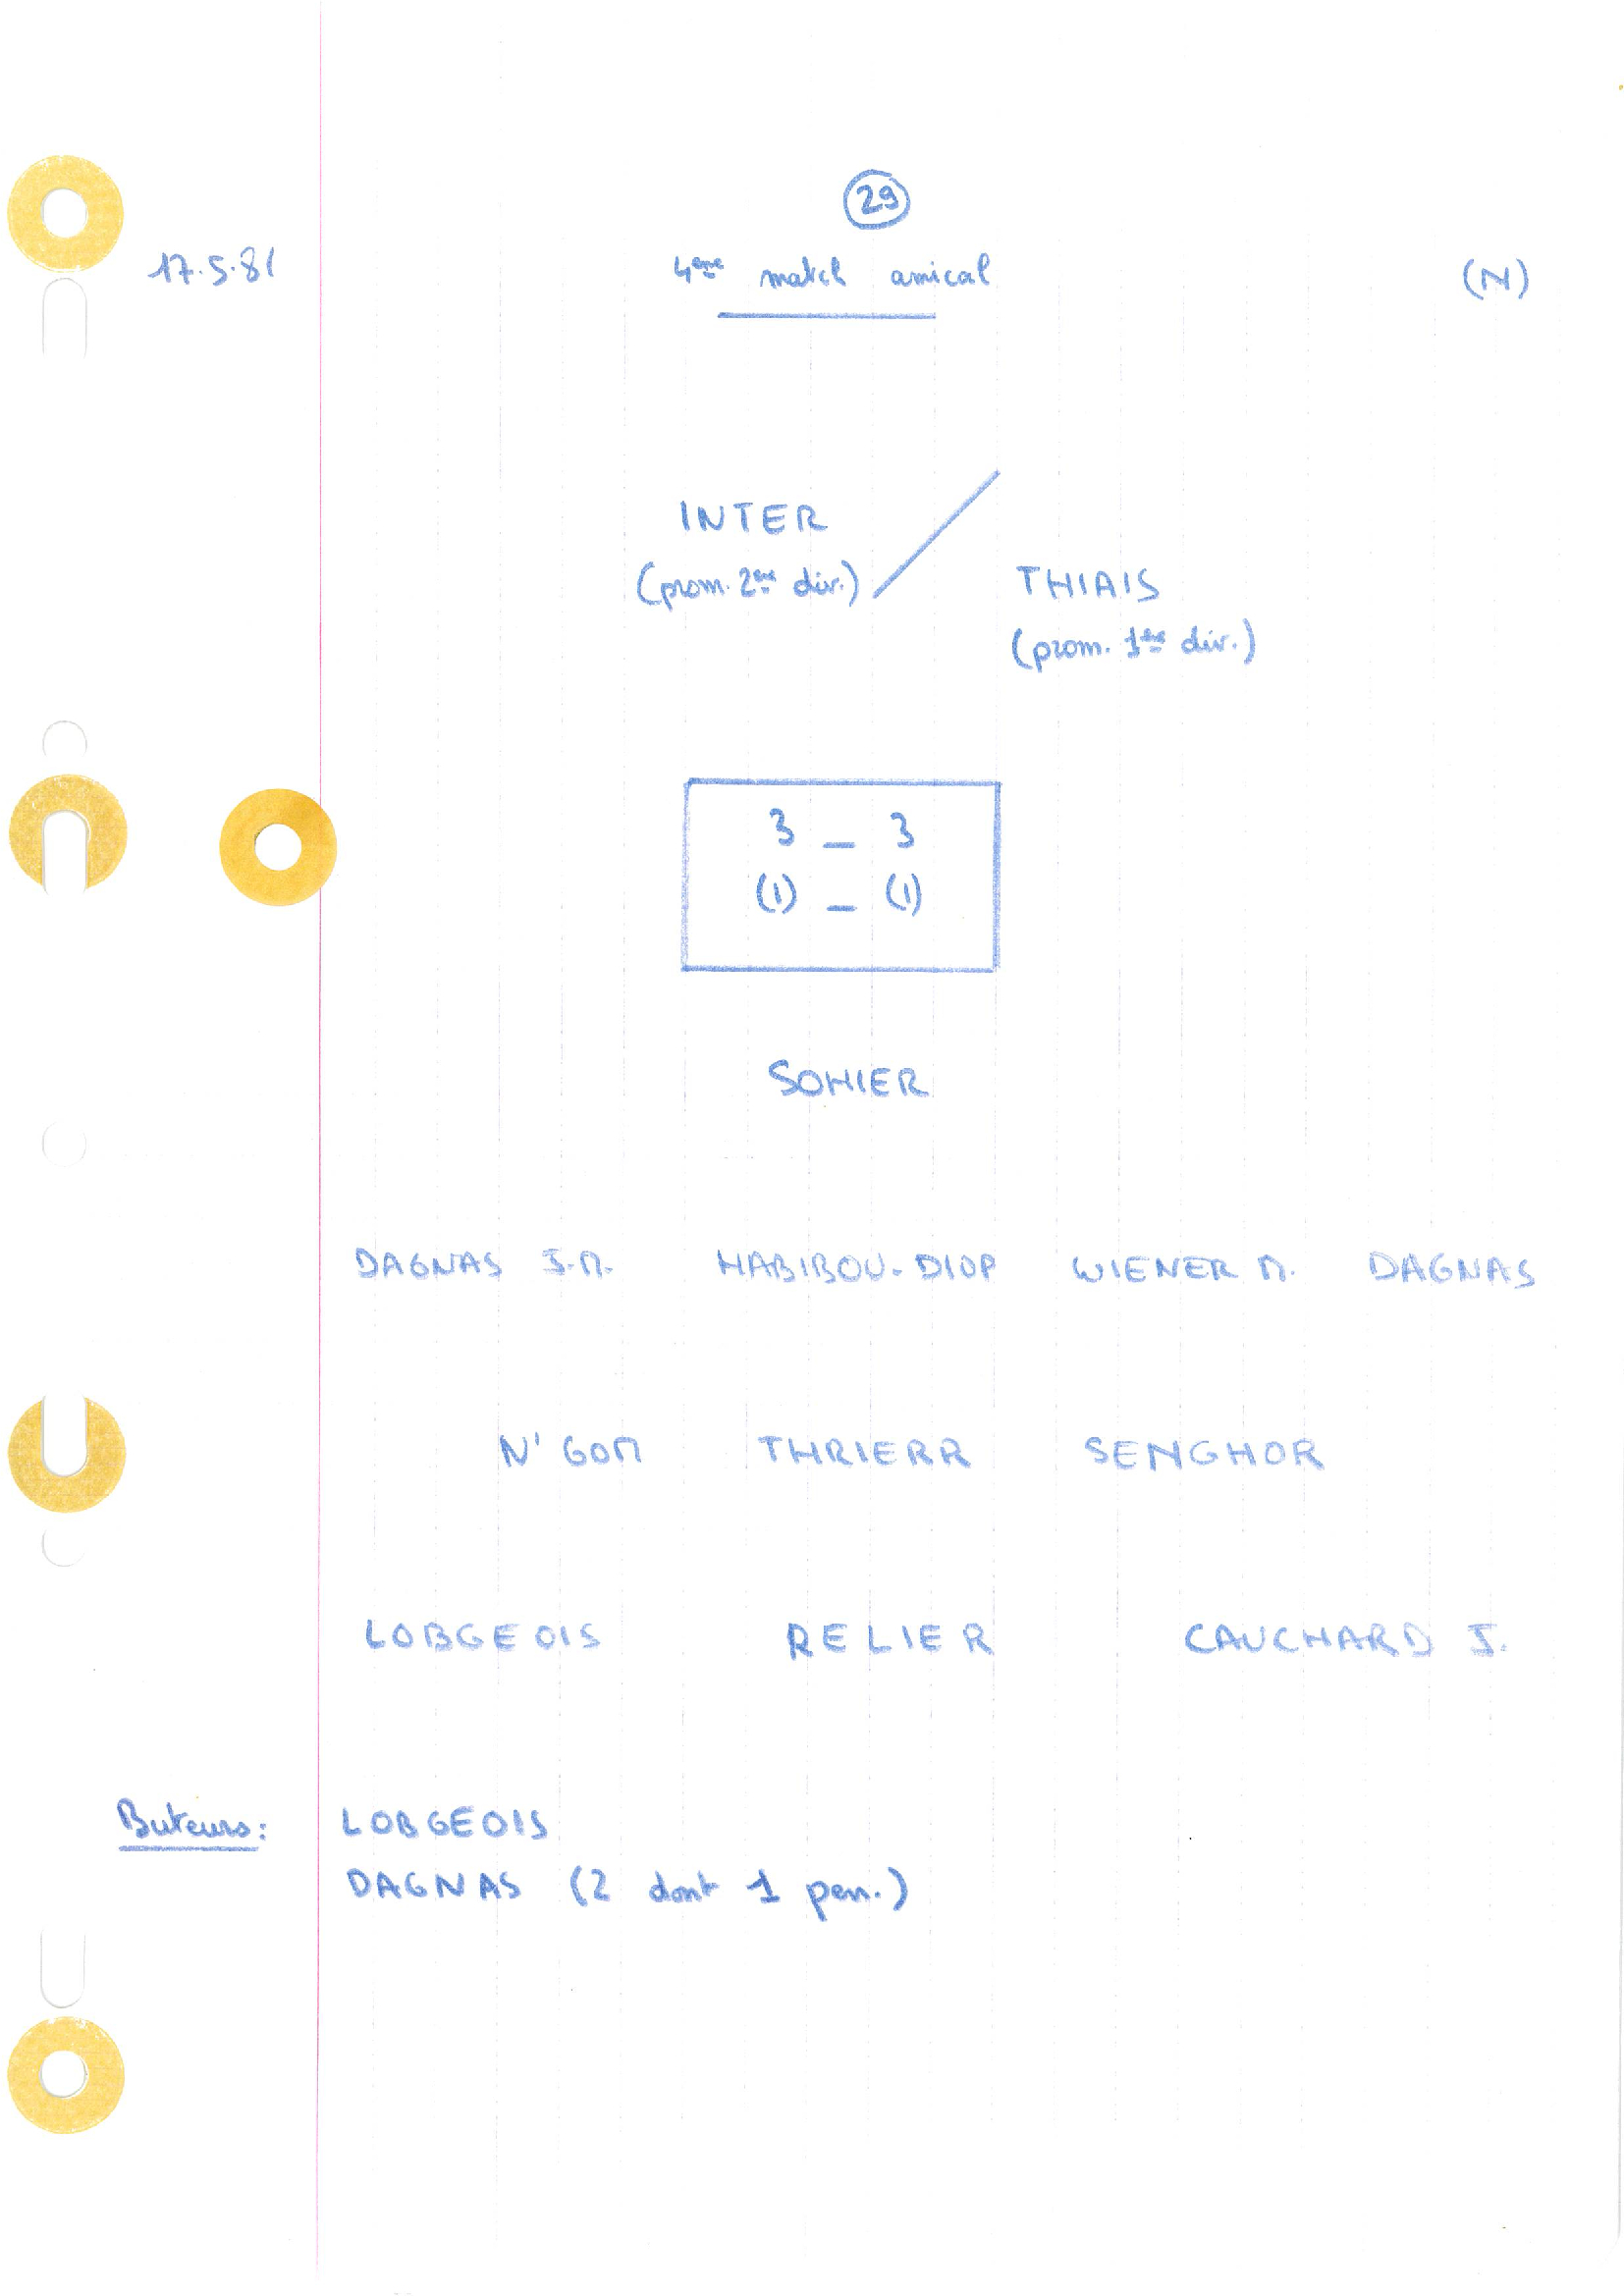 29
17.5.81 4ème match amical (N)
INTER
(prom. 2ème div.)
THIAIS
(prom. 1ère div.)
3 - 3
(1) - (1)
SOHIER
DAGNAS J.M. HABIBOU-DIOP WIENER M. DAGNAS
N'GOM THRIERR SENGHOR
LOBGEOIS RELIER CAUCHARD J.
Buteurs: LOBGEOIS
DAGNAS (2 dont 1 pen.)